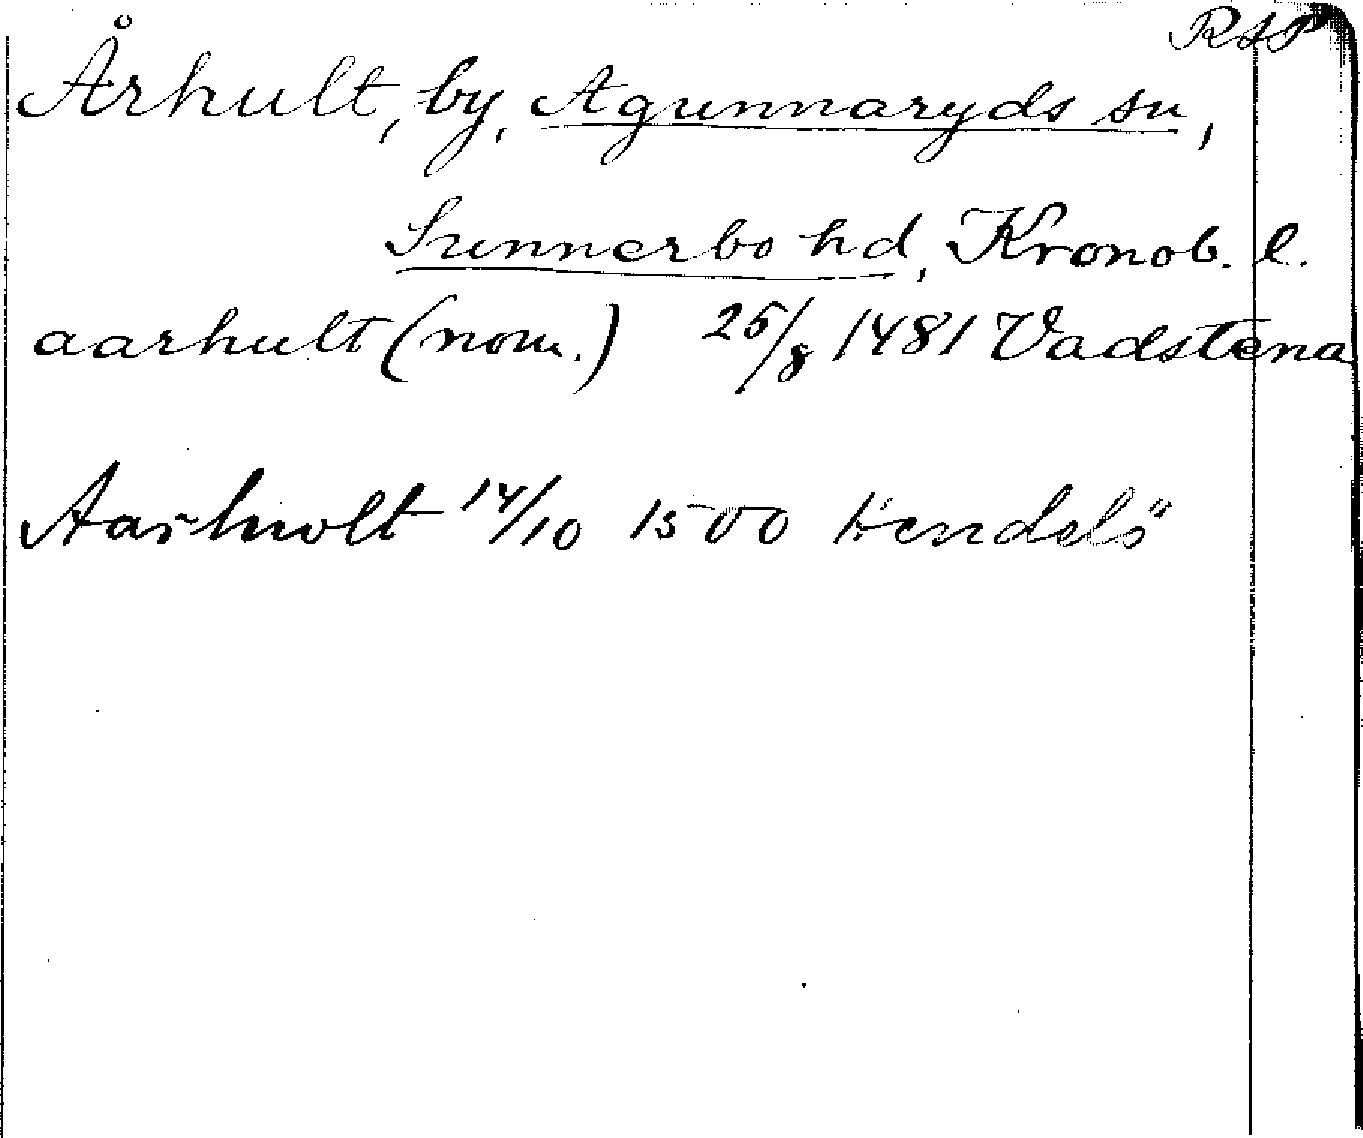 RAP
Århult, by, Agunnaryds sn,
Sunnerbo hd, Kronob. l.
aarhult (nom.) 25/8 1481 Vadstena
Aarhwlt 14/10 1500 Hendelö